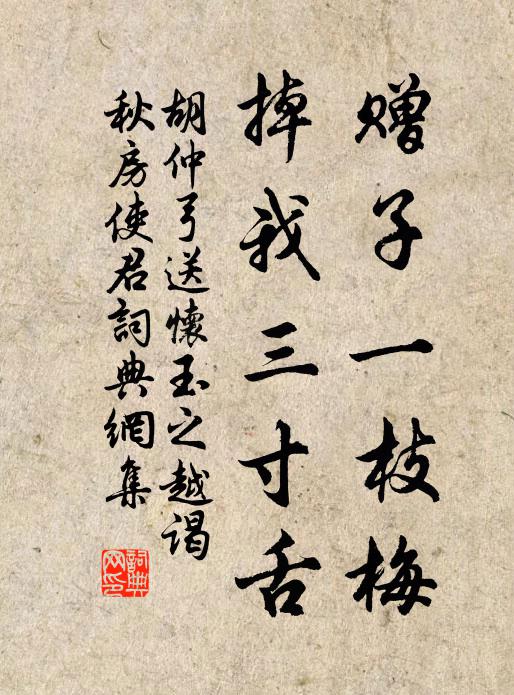 赠子一枝梅
掉我三寸舌
胡仲弓送懷玉之越謁
秋房使君詞典網集
詞典网印